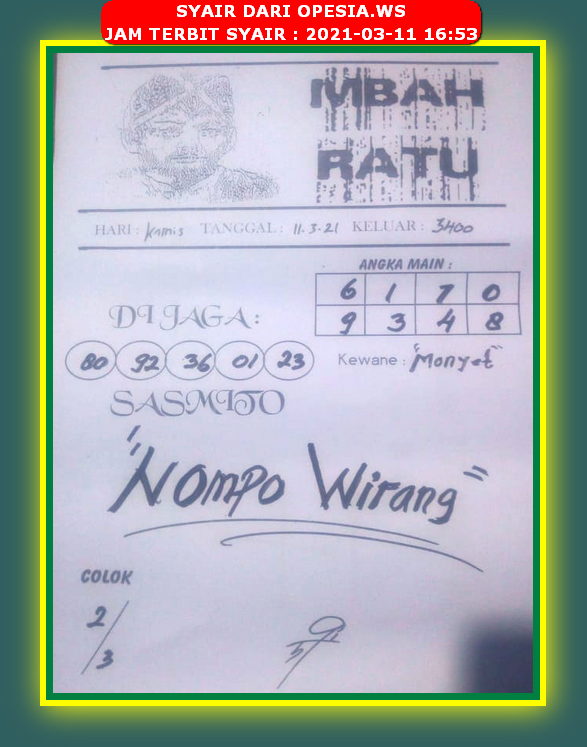 SYAIR DARI OPESIA.WS
JAM TERBIT SYAIR : 2021-03-11 16:53
MBAH
RATU
HARI : Kamis TANGGAL : 11.3.21 KELUAR : 3400
ANGKA MAIN :
6 1 7 0
9 3 4 8
DI JAGA :
80 92 36 01 23
Kewane : "Monyet"
SASMITO
"Nompo Wirang"
COLOK
2/3